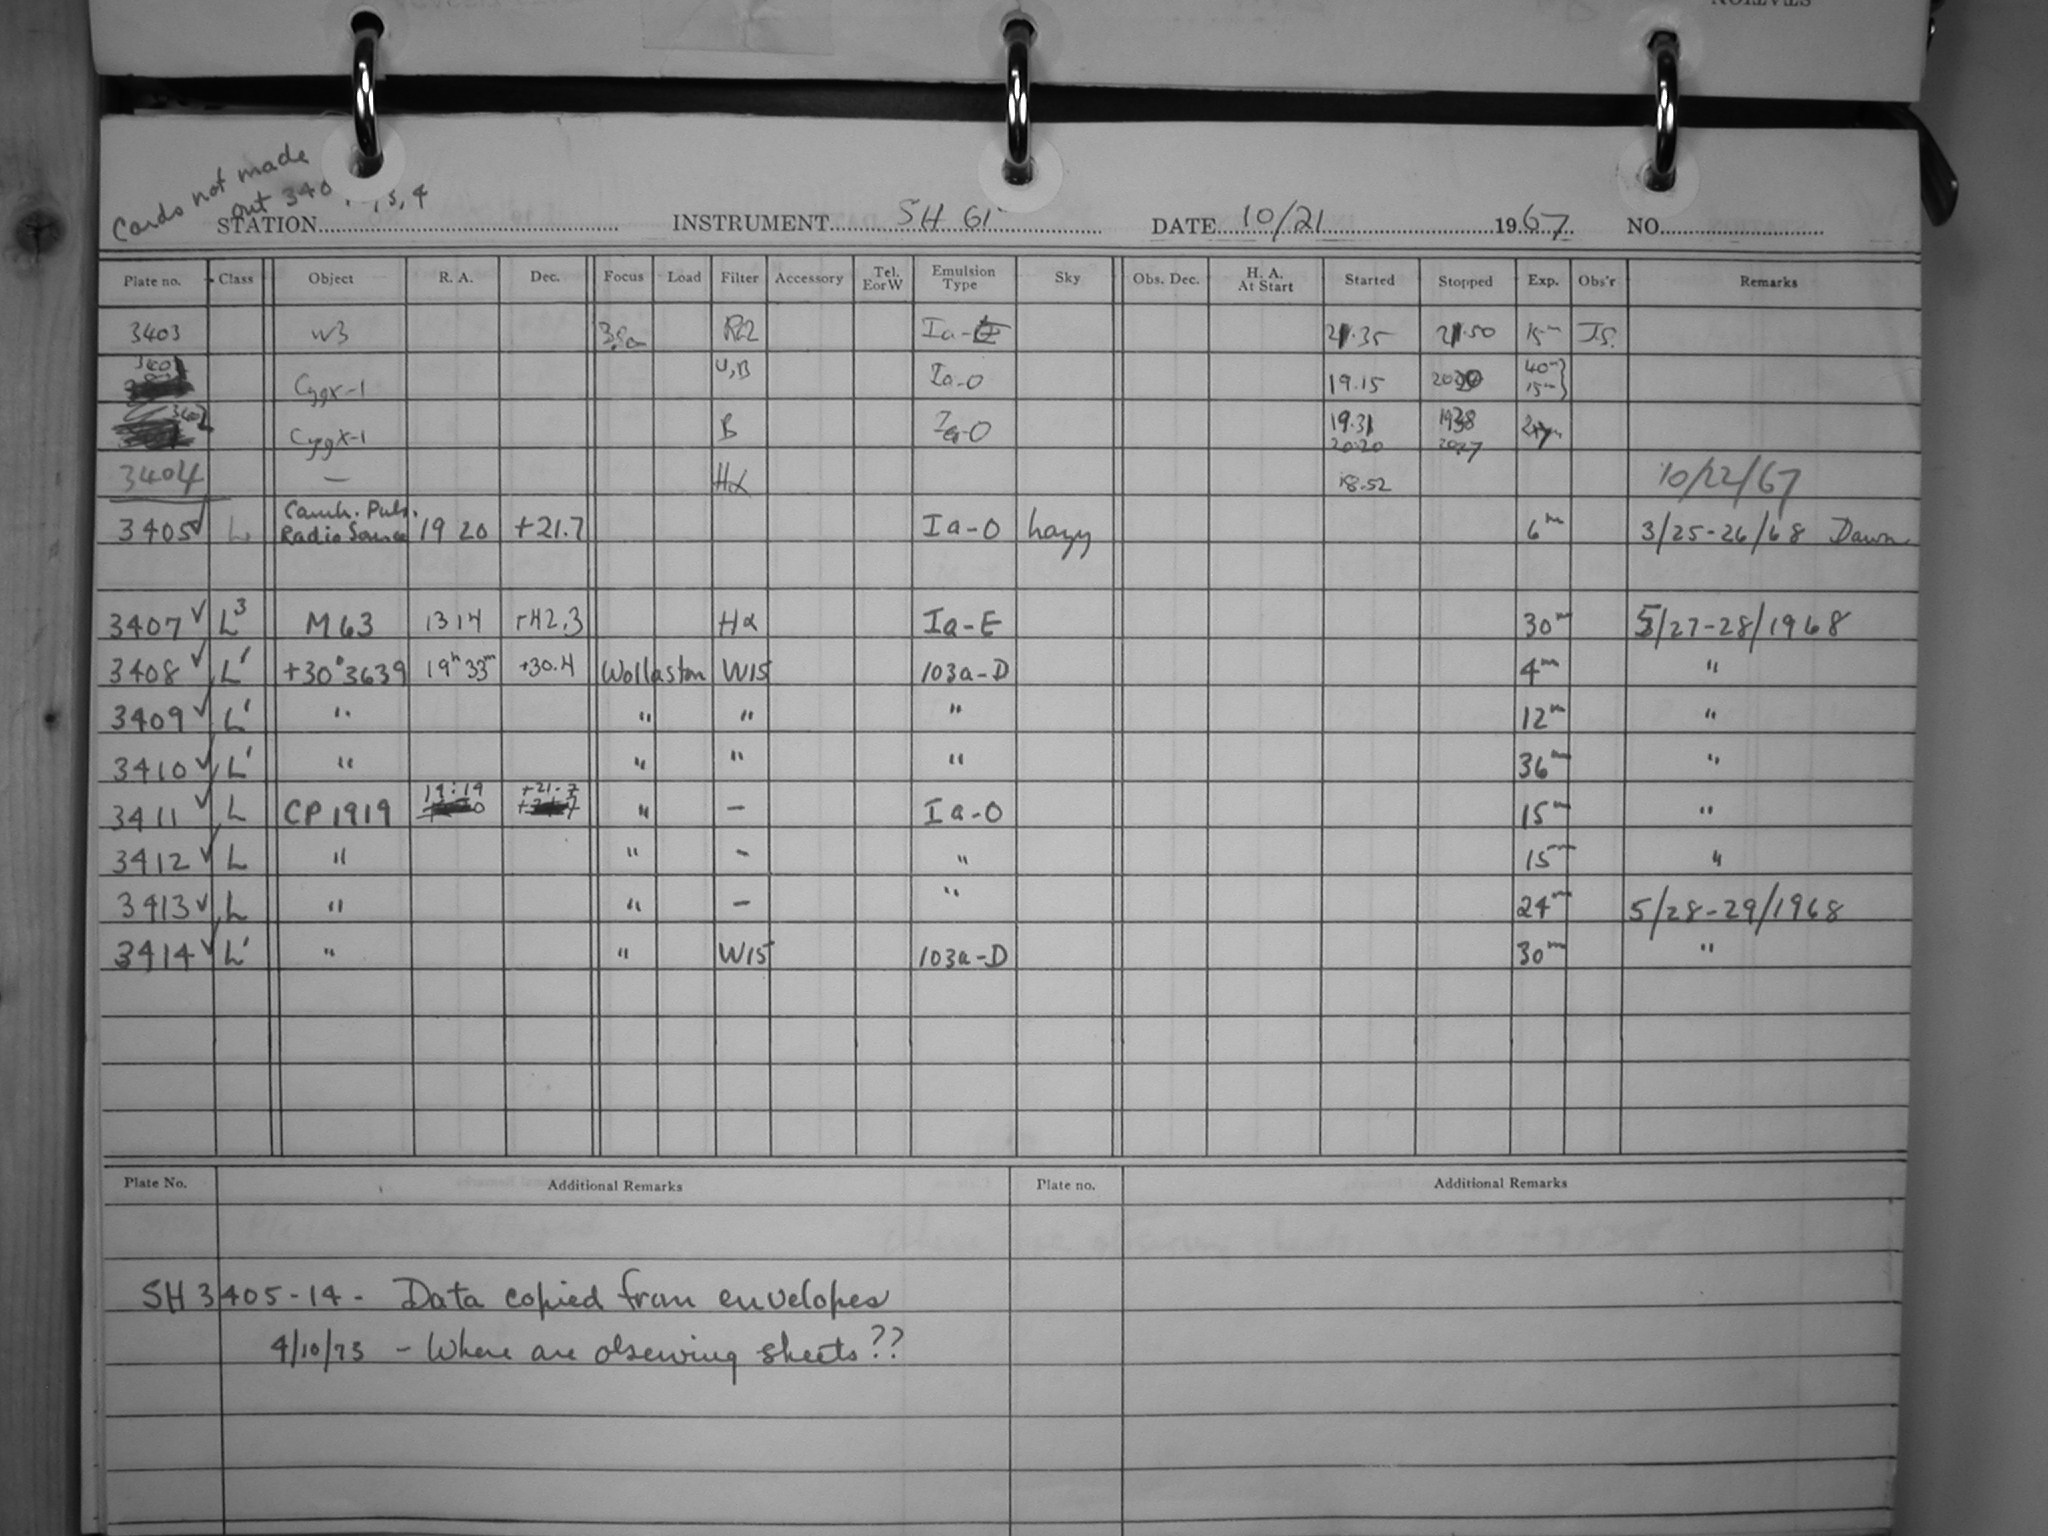 STATION
Cards not made
out 340 , 5, 4
STATION INSTRUMENT SH 61" DATE 10/21 1967 NO.
Plate no. Class Object R. A. Dec. Focus Load Filter Accessory Tel. E or W Emulsion Type Sky Obs. Dec. H. A. At Start Started Stopped Exp. Obs'r Remarks
3403 W3 Ia-E 21.35 21.50 15m JS.
3401 CygX-1 U,B Ia-O 19.15 40m 15m
3402 CygX-1 B Ia-O 19.31 1938
20.20 2027
3404 — Hα 18.52 10/22/67
3405 ✓ L Camb. Puls. Radio Source 19 20 +21.7 Ia-O hazy 6m 3/25-26/68 Dawn
3407 ✓ L3 M63 13 14 +42.3 Hα Ia-E 30m 5/27-28/1968
3408 ✓ L' +30°3639 19h 33m +30.4 Wollaston W15 103a-D 4m "
3409 ✓ L' " " " " 12m "
3410 ✓ L' " " " " 36m "
3411 ✓ L CP 1919 19:19 +21.7 " – Ia-O 15m "
3412 ✓ L " " – " 15m "
3413 ✓ L " " – " 24m 5/28-29/1968
3414 ✓ L' " " W15 103a-D 30m "
Plate No. Additional Remarks Plate no. Additional Remarks
SH 3405-14 - Data copied from envelopes
4/10/73 - Where are observing sheets??